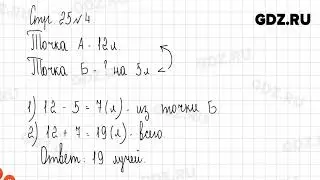 GDZ.RU
Стр. 25 № 4
Точка А - 12 л
Точка Б - ? на 5 л
1) 12 - 5 = 7 (л) - из точки Б
2) 12 + 7 = 19 (л) - всего
Ответ: 19 лучей.